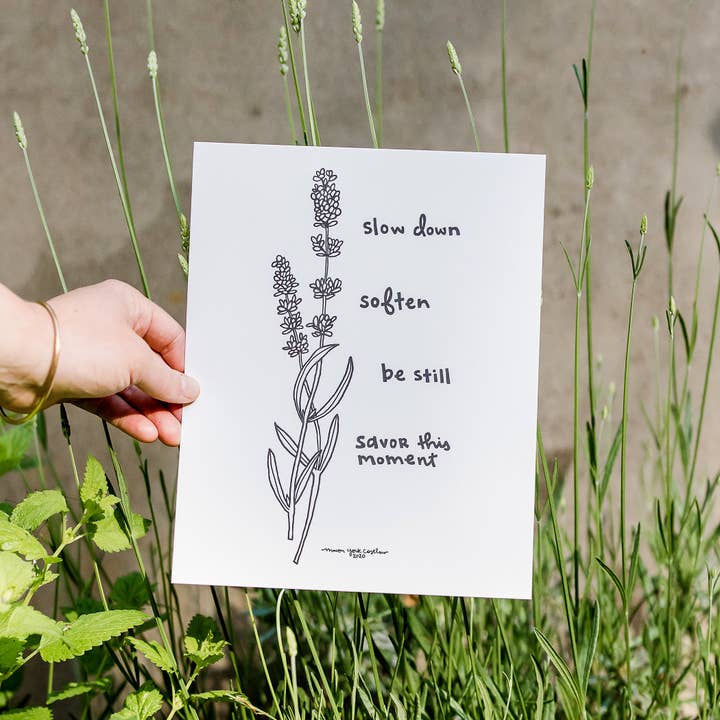 slow down
soften
be still
savor this
moment
york
©2020